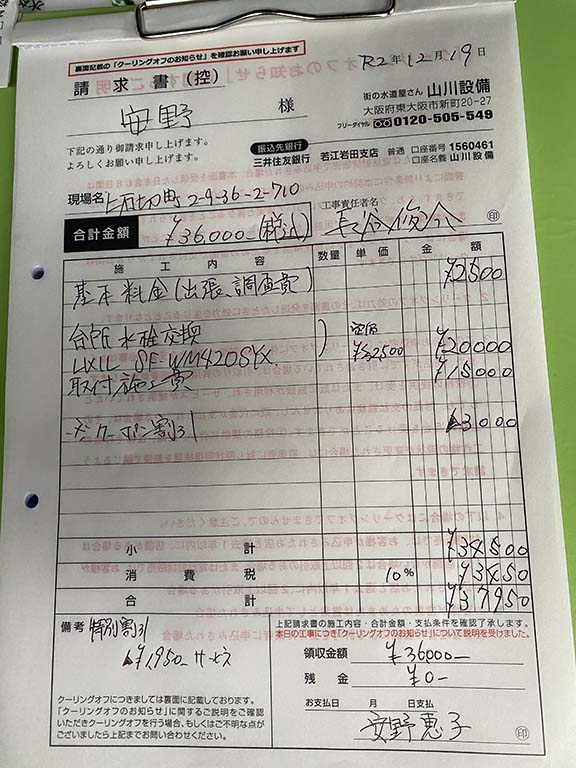 裏面記載の「クーリングオフのお知らせ」を確認お願い申し上げます
請求書(控)
R2年12月19日
安野 様
街の水道屋さん 山川設備
大阪府東大阪市新町20-27
フリーダイヤル 0120-505-549
下記の通り御請求申し上げます。
よろしくお願い申し上げます。
振込先銀行
三井住友銀行 若江岩田支店 普通 口座番号 1560461
口座名義 山川設備
現場名 上石切町 2-9-36-2-710
工事責任者名
印
合計金額 ¥36,000-(税込)
施工内容 数量 単価 金額
基本料金(出張、調査費) ¥2500
台所水栓交換 定価 ¥20000
LIXIL SF-WM420SYX ¥32500
取付施工費 ¥15000
クーポン割引 3000
小計 ¥34500
消費税 10% ¥3450
合計 ¥37950
備考 特別割引
¥1,950-サービス
上記請求書の施工内容・合計金額・支払条件を確認了承します。
本日の工事につき「クーリングオフのお知らせ」について説明を受けました。
領収金額 ¥36000-
残金 ¥0-
お支払日 月 日支払
安野恵子
印
クーリングオフにつきましては裏面に記載しております。
「クーリングオフのお知らせ」に関するご説明をご確認
いただきクーリングオフを行う場合、もしくはご不明な点が
ございましたら上記までお問い合わせください。